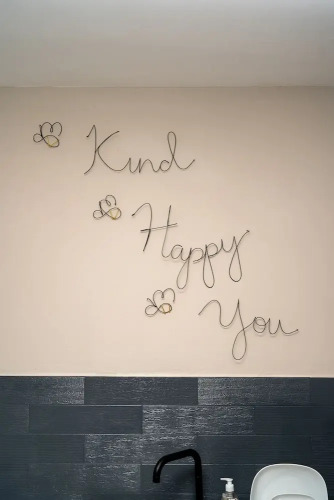 Kind
Happy
You